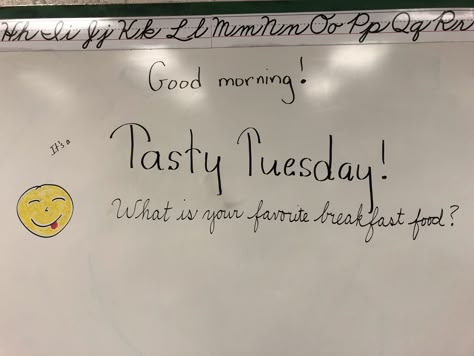 Hh Ii Jj Kk Ll Mm Nn Oo Pp Qq Rr
Good morning!
It's a
Tasty Tuesday!
What is your favorite breakfast food?